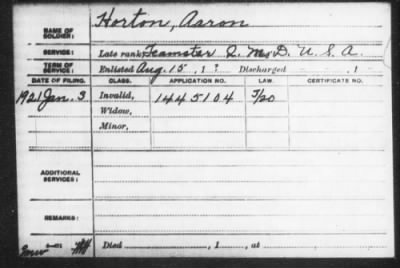 NAME OF SOLDIER: Horton, Aaron
SERVICE: Late rank, Teamster Q. M. D. U. S. A.
TERM OF SERVICE: Enlisted Aug. 15, 1? Discharged , 1
DATE OF FILING. CLASS. APPLICATION NO. LAW. CERTIFICATE NO.
1921 Jan. 3 Invalid, 1445104 5/20
Widow,
Minor,
ADDITIONAL SERVICES:
REMARKS:
Died , 1 , at